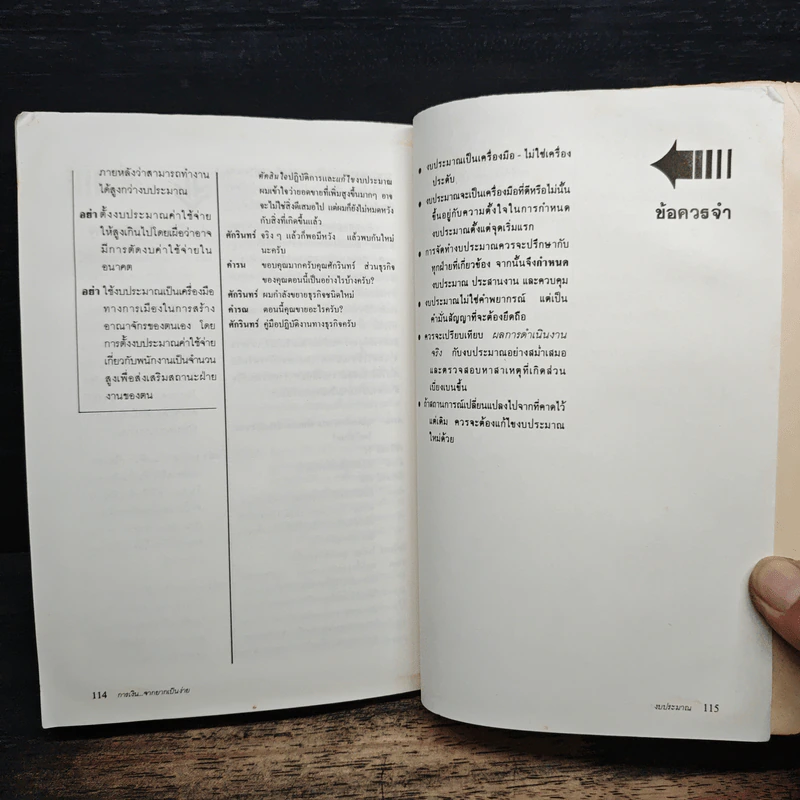 ภายหลังว่าสามารถทำงาน
ได้สูงกว่างบประมาณ
อย่า ตั้งงบประมาณค่าใช้จ่าย
ให้สูงเกินไปโดยเผื่อว่าอาจ
มีการตัดงบค่าใช้จ่ายใน
อนาคต
อย่า ใช้งบประมาณเป็นเครื่องมือ
ทางการเมืองในการสร้าง
อาณาจักรของตนเอง โดย
การตั้งงบประมาณค่าใช้จ่าย
เกี่ยวกับพนักงานเป็นจำนวน
สูงเพื่อส่งเสริมสถานะฝ่าย
งานของตน
ตัดสินใจปฏิบัติการและแก้ไขงบประมาณ
ผมเข้าใจว่ายอดขายที่เพิ่มสูงขึ้นมากๆ อาจ
จะไม่ใช่สิ่งดีเสมอไป แต่ผมก็ยังไม่หมดหวัง
กับสิ่งที่เกิดขึ้นแล้ว
ศักรินทร์ จริง ๆ แล้วก็พอมีหวัง แล้วพบกันใหม่
นะครับ
คำรน ขอบคุณมากครับคุณศักรินทร์ ส่วนธุรกิจ
ของคุณตอนนี้เป็นอย่างไรบ้างครับ?
ศักรินทร์ ผมกำลังขยายธุรกิจชนิดใหม่
คำรณ ตอนนี้คุณขายอะไรครับ?
ศักรินทร์ คู่มือปฏิบัติงานทางธุรกิจครับ
114 การเงิน...จากยากเป็นง่าย
ข้อควรจำ
• งบประมาณเป็นเครื่องมือ - ไม่ใช่เครื่อง
ประดับ
• งบประมาณจะเป็นเครื่องมือที่ดีหรือไม่นั้น
ขึ้นอยู่กับความตั้งใจในการกำหนด
งบประมาณตั้งแต่จุดเริ่มแรก
• การจัดทำงบประมาณควรจะปรึกษากับ
ทุกฝ่ายที่เกี่ยวข้อง จากนั้นจึงกำหนด
งบประมาณ ประสานงาน และควบคุม
• งบประมาณไม่ใช่คำพยากรณ์ แต่เป็น
คำมั่นสัญญาที่จะต้องยึดถือ
• ควรจะเปรียบเทียบ ผลการดำเนินงาน
จริง กับงบประมาณอย่างสม่ำเสมอ
และตรวจสอบหาสาเหตุที่เกิดส่วน
เบี่ยงเบนขึ้น
• ถ้าสถานการณ์เปลี่ยนแปลงไปจากที่คาดไว้
แต่เดิม ควรจะต้องแก้ไขงบประมาณ
ใหม่ด้วย
งบประมาณ 115